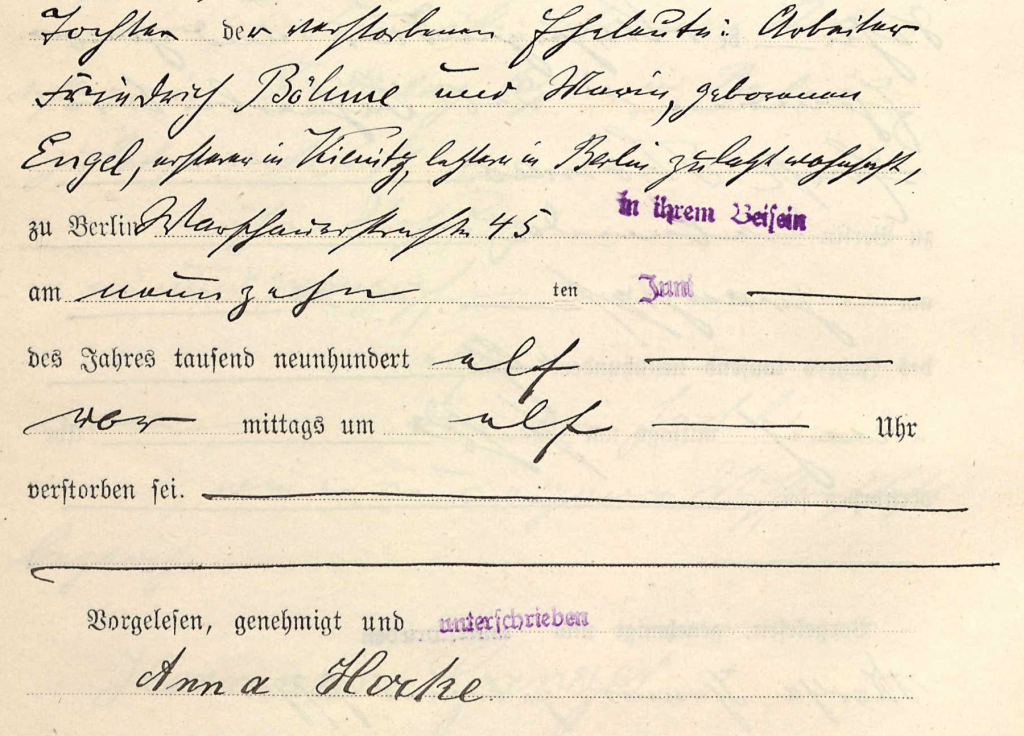 Tochter der verstorbenen Eheleute: Arbeiter
Friedrich Böhme und Marie, geborenen
Engel, ersterer in Kienitz, letztere in Berlin zuletzt wohnhaft,
zu Berlin Warschauerstraße 45 in ihrem Beisein
am neunzehn ten Juni
des Jahres tausend neunhundert elf
vor mittags um elf Uhr
verstorben sei.
Vorgelesen, genehmigt und unterschrieben
Anna Hocke